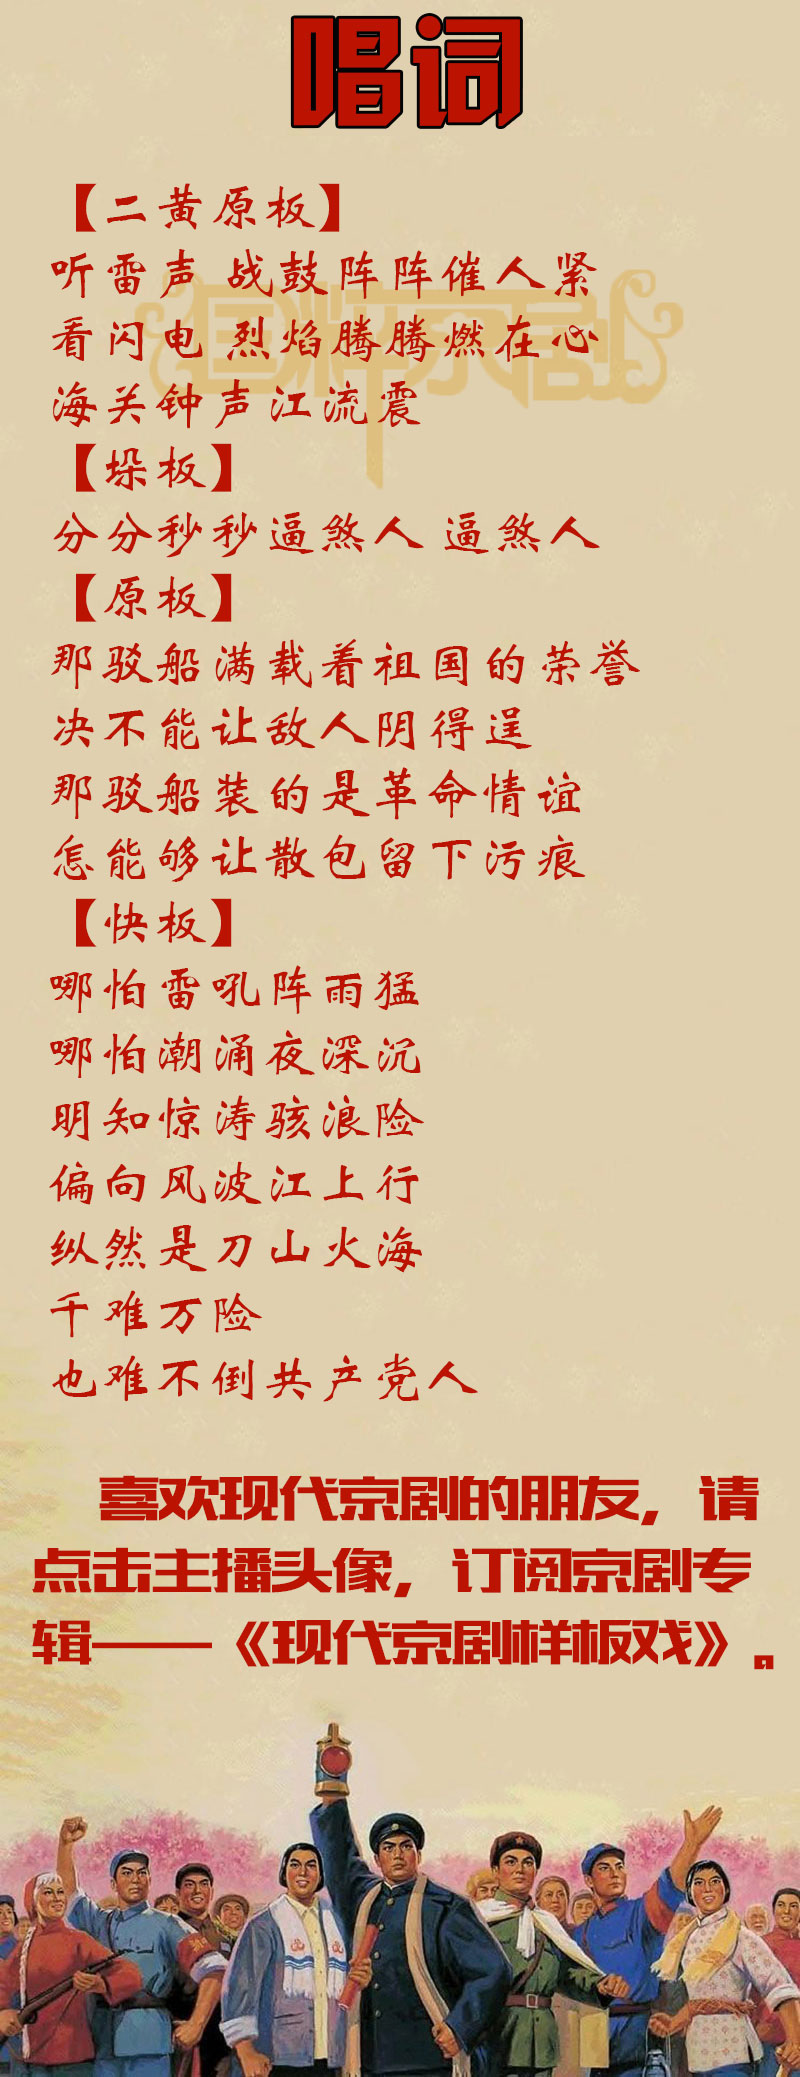 唱词
【二黄原板】
听雷声 战鼓阵阵催人紧
看闪电 烈焰腾腾燃在心
海关钟声江流震
【垛板】
分分秒秒逼煞人 逼煞人
【原板】
那驳船满载着祖国的荣誉
决不能让敌人阴得逞
那驳船装的是革命情谊
怎能够让散包留下污痕
【快板】
哪怕雷吼阵雨猛
哪怕潮涌夜深沉
明知惊涛骇浪险
偏向风波江上行
纵然是刀山火海
千难万险
也难不倒共产党人
国粹京剧
喜欢现代京剧的朋友，请
点击主播头像，订阅京剧专
辑——《现代京剧样板戏》。